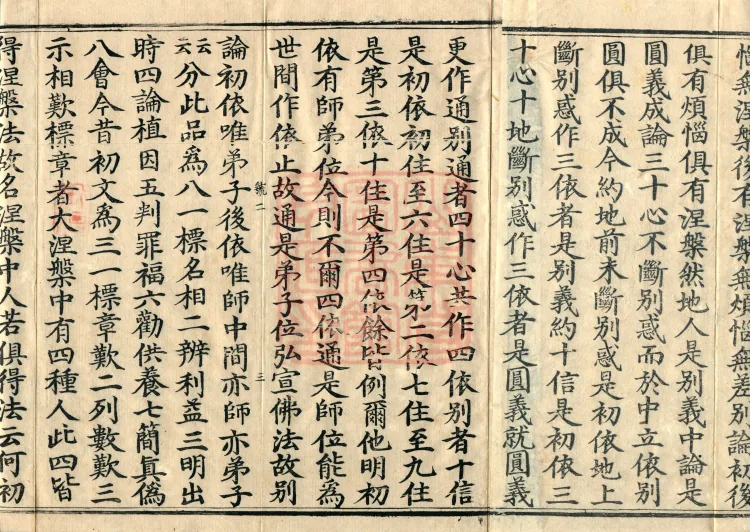 惱無涅槃後有涅槃無煩惱無差別論初後
俱有煩惱俱有涅槃然地人是別義中論是
圓義成論三十心不斷別惑而於中立依別
圓俱不成今約地前未斷別惑是初依地上
斷別惑作三依者是別義約十信是初依三
十心十地斷別惑作三依者是圓義就圓義
更作通別通者四十心共作四依別者十信
是初依初住至六住是第二依七住至九住
是第三依十住是第四依餘皆例爾他明初
依有師弟位今則不爾四依通是師位能爲
世間作依止故通是弟子位弘宣佛法故別
論初依唯弟子後依唯師中間亦師亦弟子
云云分此品爲八一標名相二辨利益三明出
時四論植因五判罪福六勸供養七簡眞僞
八會今昔初文爲三一標章歎二列數歎三
示相歎標章者大涅槃中有四種人此四皆
得涅槃法故名涅槃中人若俱得法云何初
號二
三